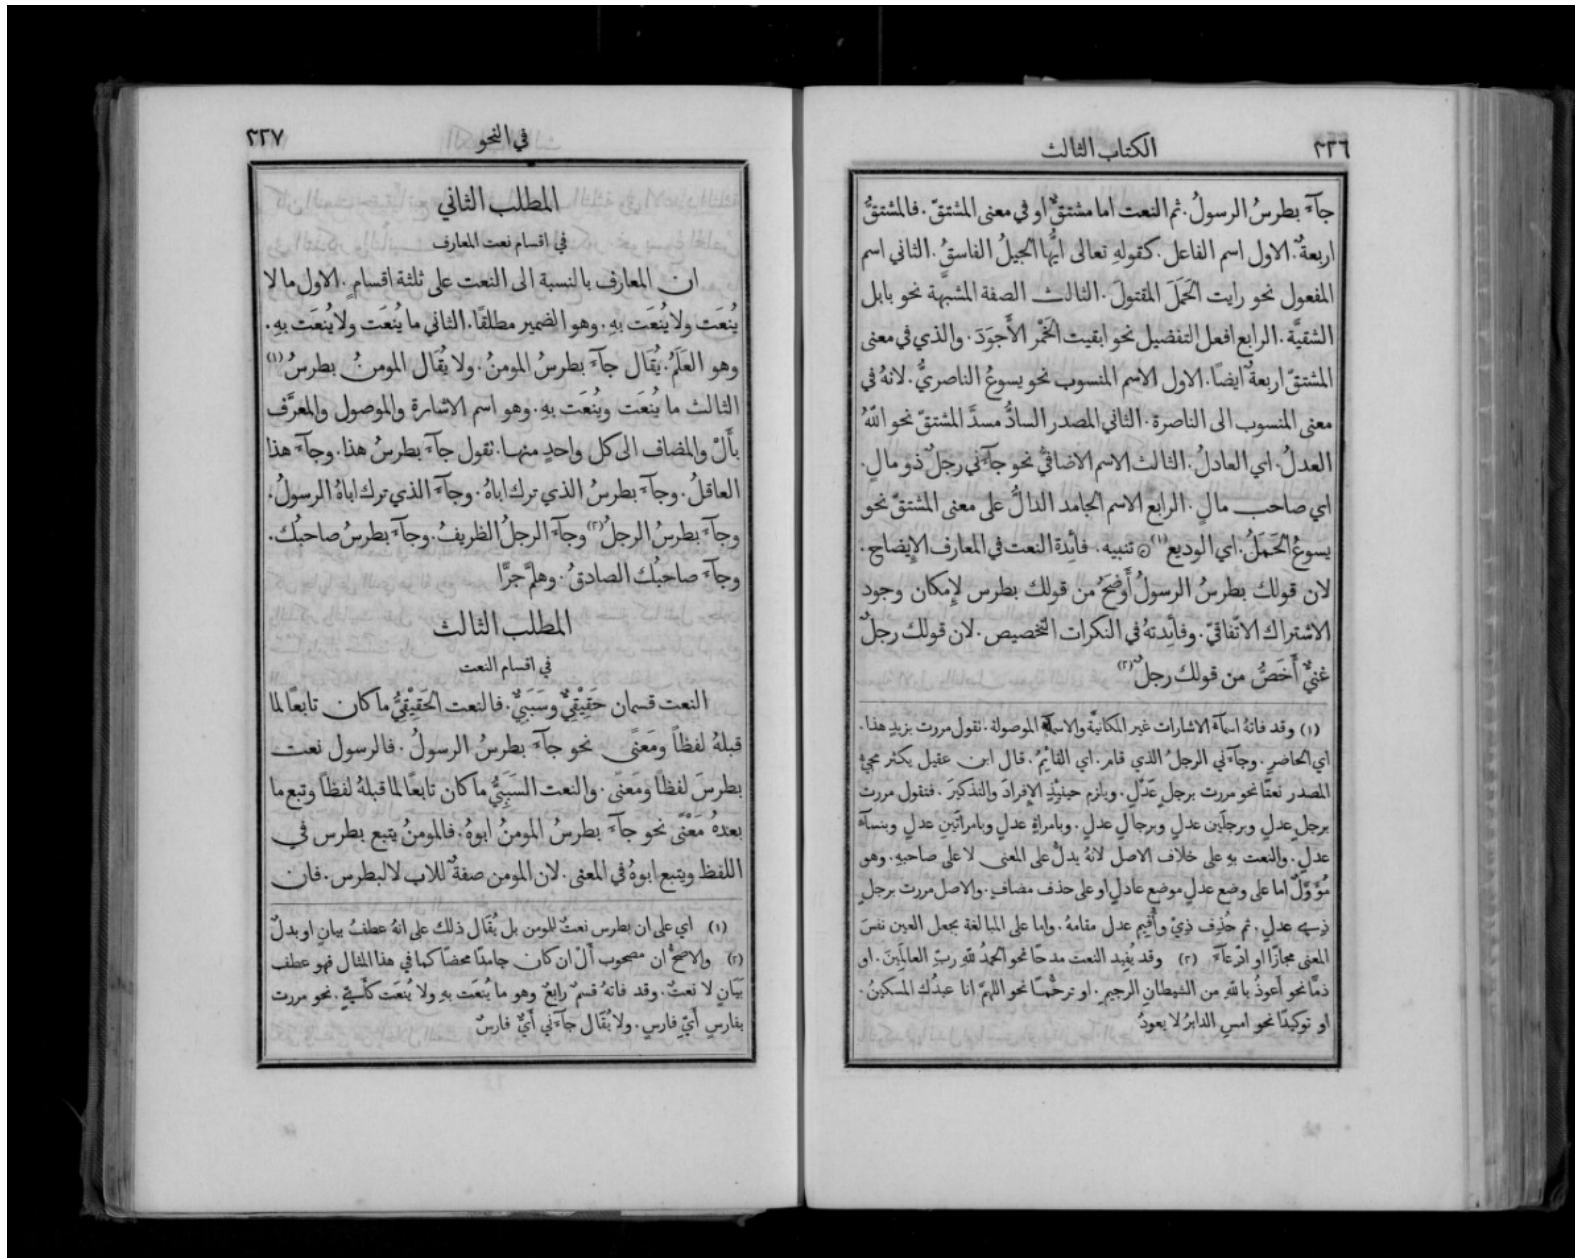 ٣٣٦
الكتاب الثالث
جآءَ بطرسُ الرسولُ. ثم النعت اما مشتقٌّ او في معنى المشتقّ. فالمشتقُّ
اربعةٌ. الاول اسم الفاعل. كقولهِ تعالى ايُّها الجيلُ الفاسقُ. الثاني اسم
المفعول نحو رايت الحَمَلَ المقتولَ. الثالث الصفة المشبهة نحو بابل
الشقيَّة. الرابع افعل التفضيل نحو ابقيت الخَمْر الأَجوَدَ. والذي في معنى
المشتقّ اربعةٌ ايضًا. الاول الاسم المنسوب نحو يسوعُ الناصريُّ. لانهُ في
معنى المنسوب الى الناصرة. الثاني المصدر السادُّ مسدَّ المشتقّ نحو اللهُ
العدلُ. اي العادلُ. الثالث الاسم الاضافيُّ نحو جآءَني رجلٌ ذو مالٍ.
اي صاحب مالٍ. الرابع الاسم الجامد الدالُّ على معنى المشتقّ نحو
يسوعُ الحَمَلُ. اي الوديع (١) ۞ تنبيه. فائدة النعت في المعارف الإِيضاح.
لان قولك بطرسُ الرسولُ أَوضحُ من قولك بطرس لإِمكان وجود
الاشتراك الاتّفاقيّ. وفائدتهُ في النكرات التخصيص. لان قولك رجلٌ
غنيٌّ أَخَصُّ من قولك رجلٌ (٢)
(١) وقد فاتهُ اسمآءُ الاشارات غير المكانيَّة والاسمآءُ الموصولة. تقول مررت بزيدٍ هذا.
اي الحاضرِ. وجآءَني الرجلُ الذي قام. اي القائمُ. قال ابن عقيل يكثر مجيءُ
المصدر نعتًا نحو مررت برجلٍ عَدْلٍ. ويلزم حينئِذٍ الإِفرادَ والتذكيرَ. فتقول مررت
برجلٍ عدلٍ وبرجلَين عدلٍ وبرجالٍ عدلٍ. وبامراةٍ عدلٍ وبامراتَينِ عدلٍ وبنسآءٍ
عدلٍ. والنعت بهِ على خلاف الاصل لانهُ يدلُّ على المعنى لا على صاحبهِ. وهو
مُؤَوَّلٌ اما على وضع عدلٍ موضع عادلٍ او على حذف مضافٍ. والاصل مررت برجلٍ
ذي عدلٍ. ثم حُذِف ذي وأُقيم عدل مقامهُ. واما على المبالغة بجعل العين نفسَ
المعنى مجازًا او ادّعآءً (٢) وقد يُفيد النعت مدحًا نحو الحمدُ للهِ ربّ العالمينَ. او
ذمًّا نحو أَعوذُ باللهِ من الشيطانِ الرجيمِ. او ترحُّمًا نحو اللهمَّ انا عبدُك المسكينُ.
او توكيدًا نحو امسِ الدابرُ لا يعودُ
في النحو
٣٣٧
المطلب الثاني
في اقسام نعت المعارف
ان المعارف بالنسبة الى النعت على ثلثة اقسامٍ. الاول ما لا
يُنعَت ولا يُنعَت بهِ. وهو الضمير مطلقًا. الثاني ما يُنعَت ولا يُنعَت بهِ.
وهو العَلَمُ. يُقَال جآءَ بطرسُ المومنُ. ولا يُقَال المومنُ بطرسُ (١)
الثالث ما يُنعَت ويُنعَت بهِ. وهو اسم الاشارة والموصول والمعرَّف
بأَلْ والمضاف الى كل واحدٍ منها. تقول جآءَ بطرسُ هذا. وجآءَ هذا
العاقلُ. وجآءَ بطرسُ الذي ترك اباهُ. وجآءَ الذي ترك اباهُ الرسولُ.
وجآءَ بطرسُ الرجلُ (٢) وجآءَ الرجلُ الظريفُ. وجآءَ بطرسُ صاحبُك.
وجآءَ صاحبُك الصادقُ. وهلمَّ جرًّا
المطلب الثالث
في اقسام النعت
النعت قسمان حَقِيْقِيٌّ وسَبَبِيٌّ. فالنعت الحَقِيْقِيُّ ما كان تابعًا لما
قبلهُ لفظًا ومَعنًى نحو جآءَ بطرسُ الرسولُ. فالرسول نعت
بطرسَ لفظًا ومَعنًى. والنعت السَبَبِيُّ ما كان تابعًا لما قبلهُ لفظًا وتبع ما
بعدهُ مَعْنًى نحو جآءَ بطرسُ المومنُ ابوهُ. فالمومنُ يتبع بطرس في
اللفظ ويتبع ابوهُ في المعنى. لان المومن صفةٌ للاب لا لبطرس. فان
(١) اي على ان بطرس نعتٌ للمومن بل يُقَال ذلك على انهُ عطفُ بيانٍ او بدلٌ
(٢) والاصحُّ ان مصحوب أَلْ ان كان جامدًا محضًا كما في هذا المثال فهو عطف
بَيَانٍ لا نعتٌ. وقد فاتهُ قسمٌ رابعٌ وهو ما يُنعَت بهِ ولا يُنعَت كأَيٍّ. نحو مررت
بفارسٍ أَيِّ فارسٍ. ولا يُقَال جآءَني أَيٌّ فارسٌ